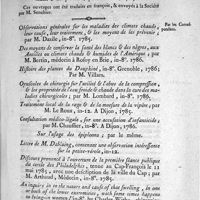 Ces ouvrages ont été traduits en françois, & envoyés à la Société
par M. Senebier.
Observations générales sur les maladies des climats chauds,
leur cause, leur traitement, & les moyens de les prévenir;
par M. Dazile, in-8°. 1785.
Des moyens de conserver la santé des blancs & des nègres, aux
Antilles ou climats chauds & humides de l'Amérique; par
M. Bertin, médecin à Rosoy en Brie, in-8°. 1786.
Histoire des plantes du Dauphiné, in-8°. Grenoble, 1786;
Par M. Villars.
Opuscules de chirurgie sur l'utilité & l'abus de la compression,
& les propriétés de l'eau froide & chaude dans la cure des mala-
dies chirurgicales; par M. Lombard, in-8°. 1786.
Traitement local de la rage & de la morsure de la vipère; par
M. Le Roux, in-12. A Dijon, 1785.
Consultation médico-légale, sur une accusation d'infanticide;
par M. Chaussier, in-8°. A Dijon, 1786.
Sur l'usage des épispastiques; par le même.
Lettre de M. Dalclaing, contenant une observation intéressante
sur la petite-vérole, in-12.
Discours prononcé à l'ouverture de la première séance publique
du cercle des Philadelphes, tenue au Cap-François le 11
mai 1785, avec une description de la ville du Cap; par
M. Arthaud, Médecin, in-8°. 1785.
An inquiry in to the nature and cause of that swelling, in one